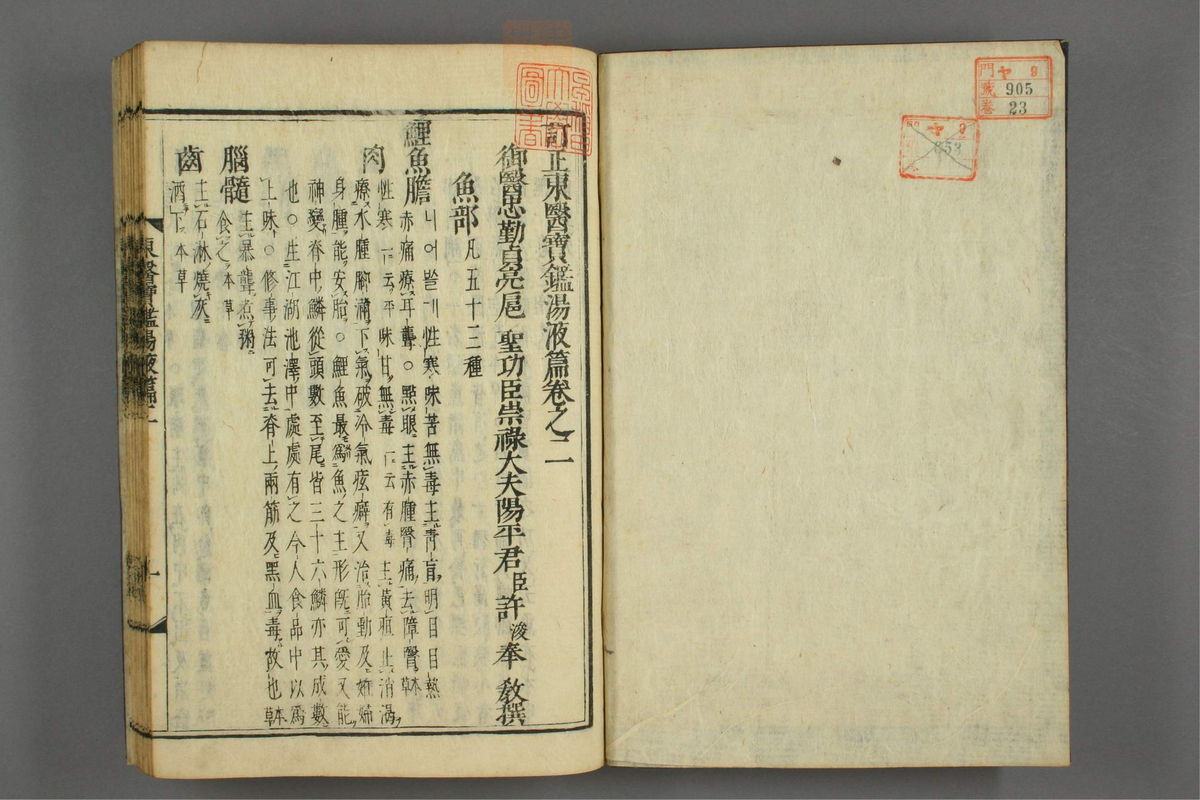 訂正東醫寶鑑湯液篇卷之二
御醫忠勤貞亮扈 聖功臣崇祿大夫陽平君臣許浚奉 敎撰
魚部 凡五十三種
鯉魚膽 니어쓸게性寒味苦無毒主靑盲明目目熱
赤痛療耳聾○點眼主赤腫瞖痛去障瞖本草
肉 性寒一云平味甘無毒一云有毒主黃疸止消渴
療水腫脚滿下氣破冷氣痃癖又治胎動及姙婦
身腫能安胎○鯉魚最爲魚之主形旣可愛又能
神變脊中鱗從頭數至尾皆三十六鱗亦其成數
也○生江湖池澤中處處有之今人食品中以爲
上味○修事法可去脊上兩筋及黑血毒故也本草
腦髓 主暴聾煮粥
食之本草
齒 主石淋燒灰
酒下本草
東醫寶鑑湯液篇二
一
門 ヤ 9
號 905
卷 23
ヤ 9
853